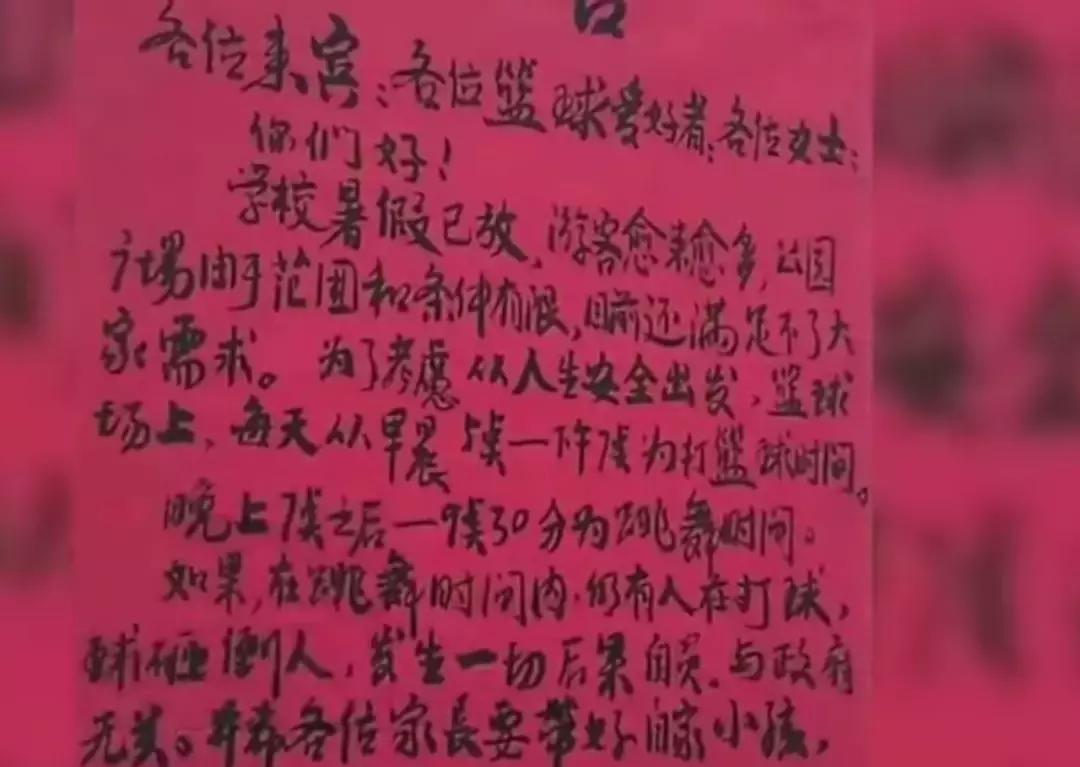 各位来宾：各位篮球爱好者；各位女士：
你们好！
学校暑假已放，游客愈来愈多，公园
广場由于范围和条件有限，目前还满足不了大
家需求。为了考虑从人生安全出发，篮球
场上，每天从早晨5点—下午7点为打篮球时间。
晚上7点之后—9点30分为跳舞时间。
如果，在跳舞时间内，仍有人在打球，
球砸倒人，发生一切后果自负，与政府
无关。并希各位家長要带好自家小孩，